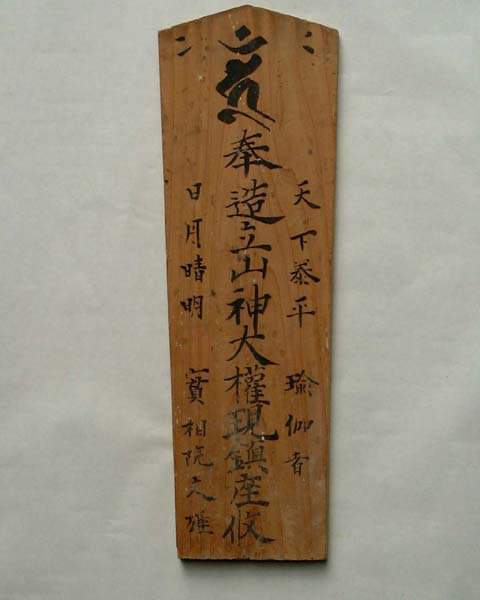 天下泰平 瑜伽者
奉造立山神大權現鎮座攸
日月晴明 實相院 雄